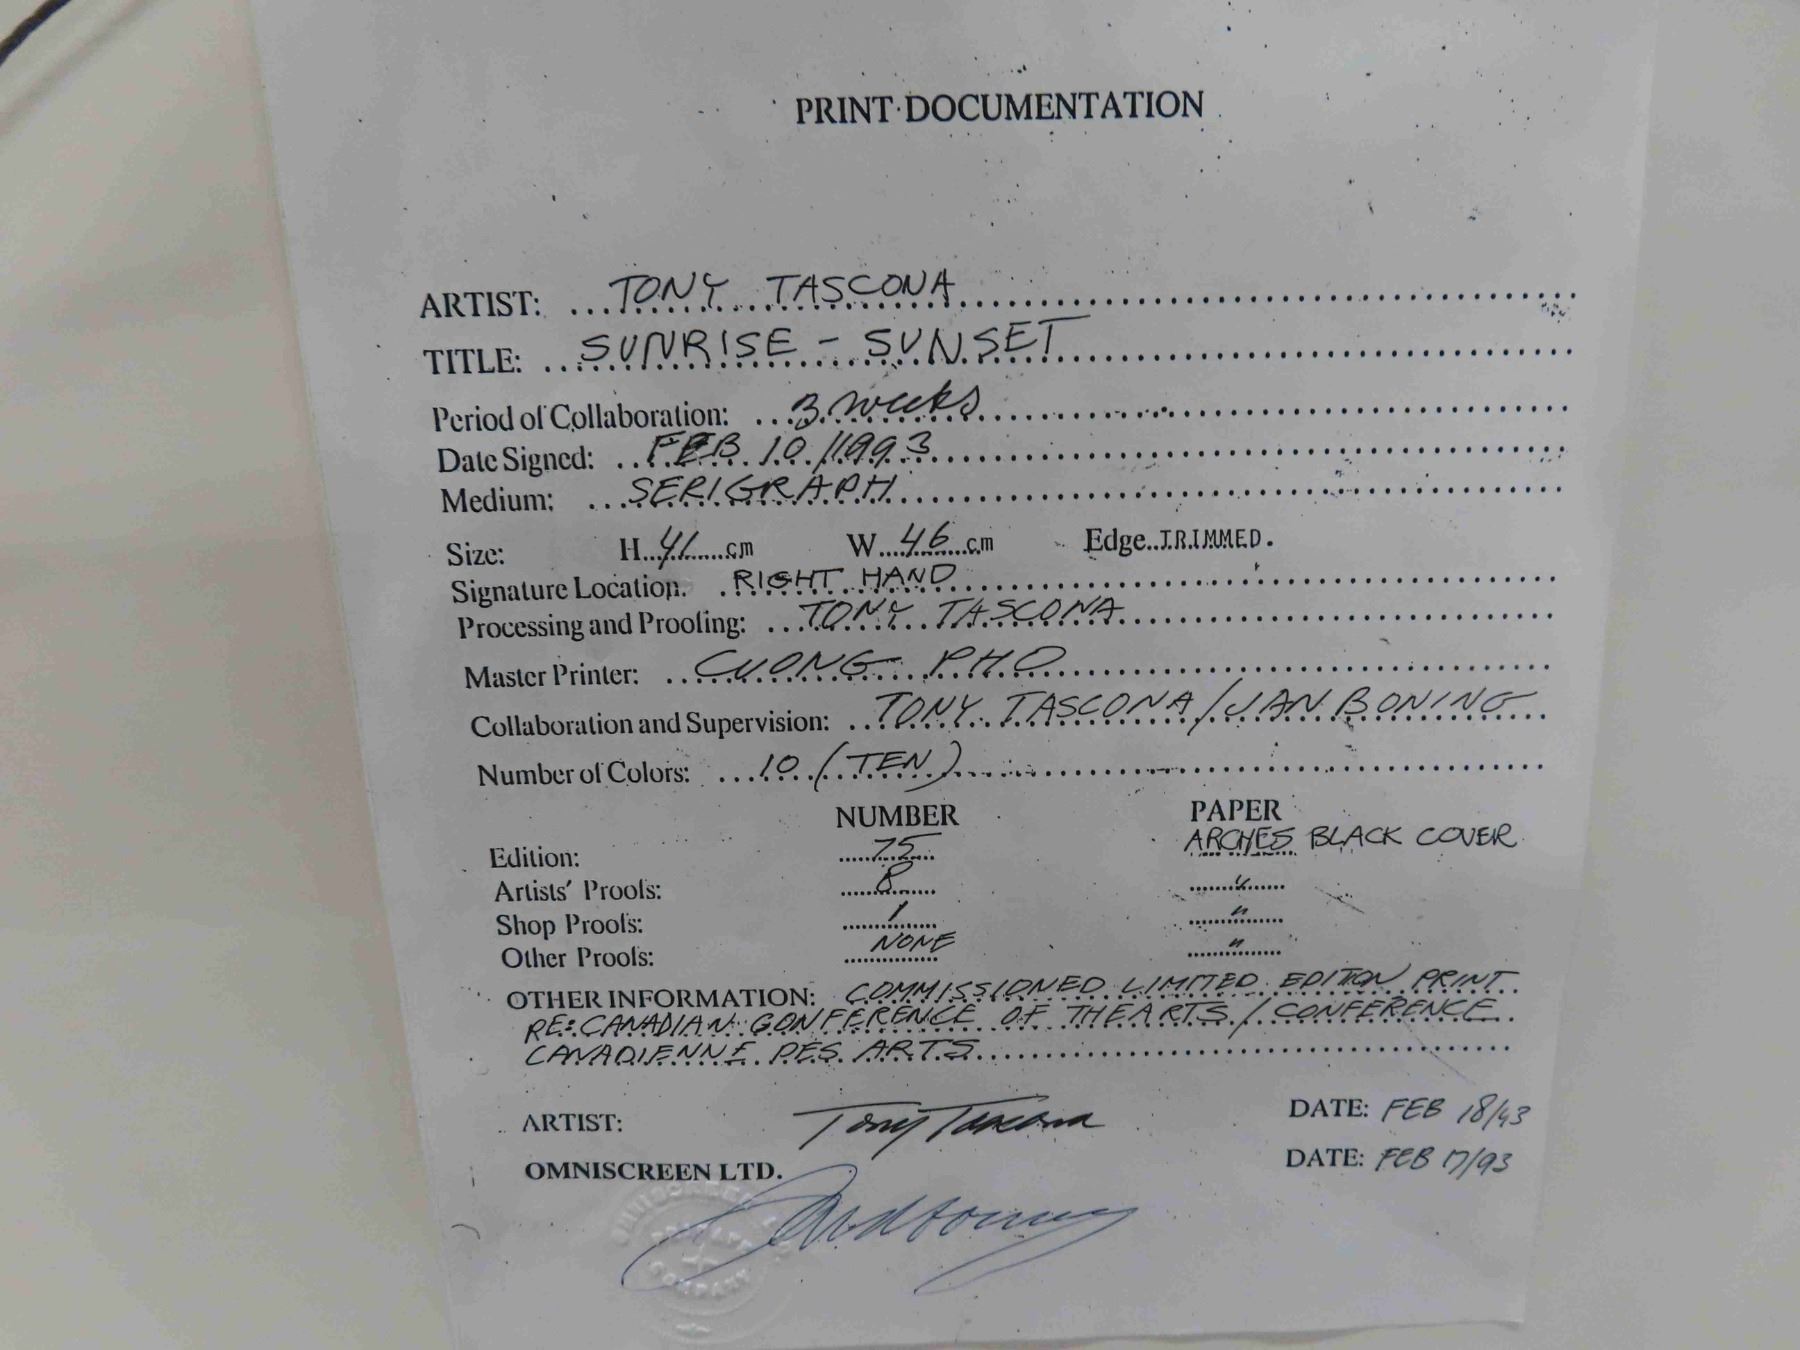 PRINT DOCUMENTATION
ARTIST: TONY TASCONA
TITLE: SUNRISE - SUNSET
Period of Collaboration: 3 weeks
Date Signed: FEB 10/1993
Medium: SERIGRAPH
Size: H 41 cm W 46 cm Edge TRIMMED.
Signature Location. RIGHT HAND
Processing and Proofing: TONY TASCONA
Master Printer: CUONG PHO
Collaboration and Supervision: TONY TASCONA/JAN BONING
Number of Colors: 10 (TEN)
NUMBER PAPER
Edition: 75 ARCHES BLACK COVER
Artists' Proofs: 8 "
Shop Proofs: 1 "
Other Proofs: NONE "
OTHER INFORMATION: COMMISSIONED LIMITED EDITION PRINT
RE: CANADIAN CONFERENCE OF THE ARTS / CONFERENCE
CANADIENNE DES ARTS
ARTIST: Tony Tascona DATE: FEB 18/93
OMNISCREEN LTD. DATE: FEB 17/93